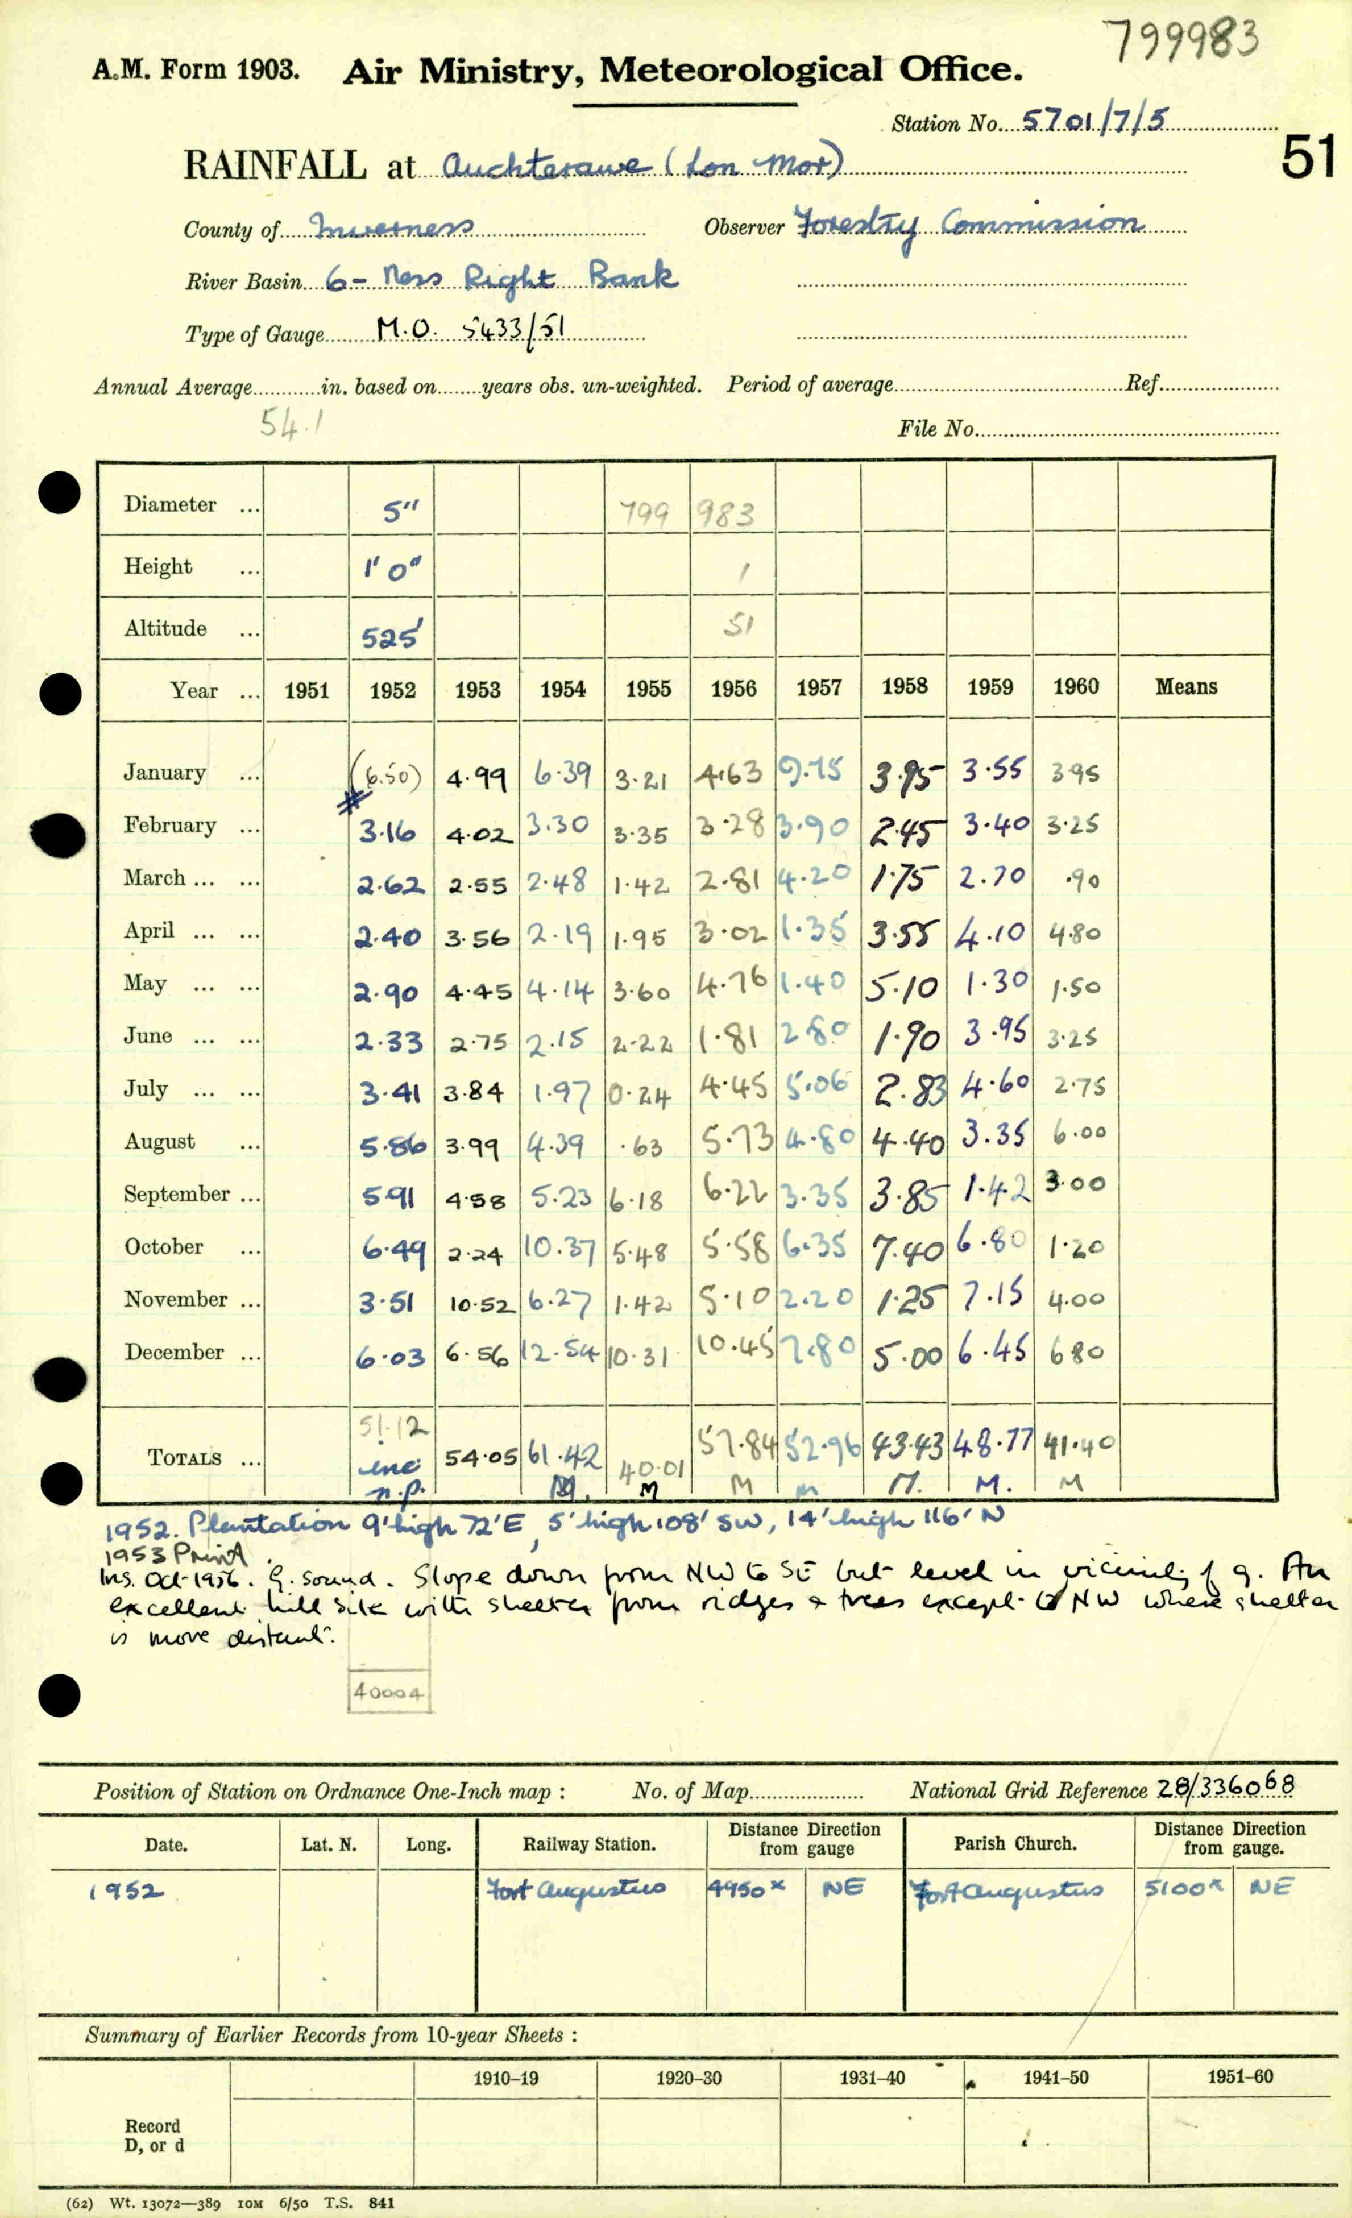 799983
A.M. Form 1903. Air Ministry, Meteorological Office.
Station No. 5701/7/5
51
RAINFALL at Auchterawe (Lon Mor)
County of Inverness Observer Forestry Commission
River Basin 6- Ness Right Bank
Type of Gauge M.O. 5433/51
Annual Average in. based on years obs. un-weighted. Period of average Ref.
54.1
File No.
Diameter ... 5" 799 983
Height ... 1' 0" 1
Altitude ... 525' 51
Year ... 1951 1952 1953 1954 1955 1956 1957 1958 1959 1960 Means
January ... (6.50) 4.99 6.39 3.21 4.63 9.75 3.95 3.55 3.95
February ... 3.16 4.02 3.30 3.35 3.28 3.90 2.45 3.40 3.25
March ... ... 2.62 2.55 2.48 1.42 2.81 4.20 1.75 2.70 .90
April ... ... 2.40 3.56 2.19 1.95 3.02 1.35 3.55 4.10 4.80
May ... ... 2.90 4.45 4.14 3.60 4.76 1.40 5.10 1.30 1.50
June ... ... 2.33 2.75 2.15 2.22 1.81 2.80 1.90 3.95 3.25
July ... ... 3.41 3.84 1.97 0.24 4.45 5.06 2.83 4.60 2.75
August ... 5.86 3.99 4.39 .63 5.73 4.80 4.40 3.35 6.00
September ... 5.91 4.58 5.23 6.18 6.22 3.35 3.85 1.42 3.00
October ... 6.49 2.24 10.37 5.48 5.58 6.35 7.40 6.80 1.20
November ... 3.51 10.52 6.27 1.42 5.10 2.20 1.25 7.15 4.00
December ... 6.03 6.56 12.54 10.31 10.45 7.80 5.00 6.45 6.80
51.12
TOTALS ... inc 54.05 61.42 40.01 57.84 52.96 43.43 48.77 41.40
n.p. M. M M M M. M. M
1952. Plantation 9' high 72' E, 5' high 108' SW, 14' high 116' N
1953 Print.
Ins. Oct 1956. G. sound. Slope down from NW to SE but level in vicinity of g. An
excellent hill site with shelter from ridges & trees except to NW where shelter
is more distant.
40004
Position of Station on Ordnance One-Inch map : No. of Map National Grid Reference 28/336068
Date. Lat. N. Long. Railway Station. Distance Direction from gauge Parish Church. Distance Direction from gauge.
1952 Fort Augustus 4950x NE Fort Augustus 5100x NE
Summary of Earlier Records from 10-year Sheets :
1910-19 1920-30 1931-40 1941-50 1951-60
Record
D, or d
(62) Wt. 13072—389 10M 6/50 T.S. 841